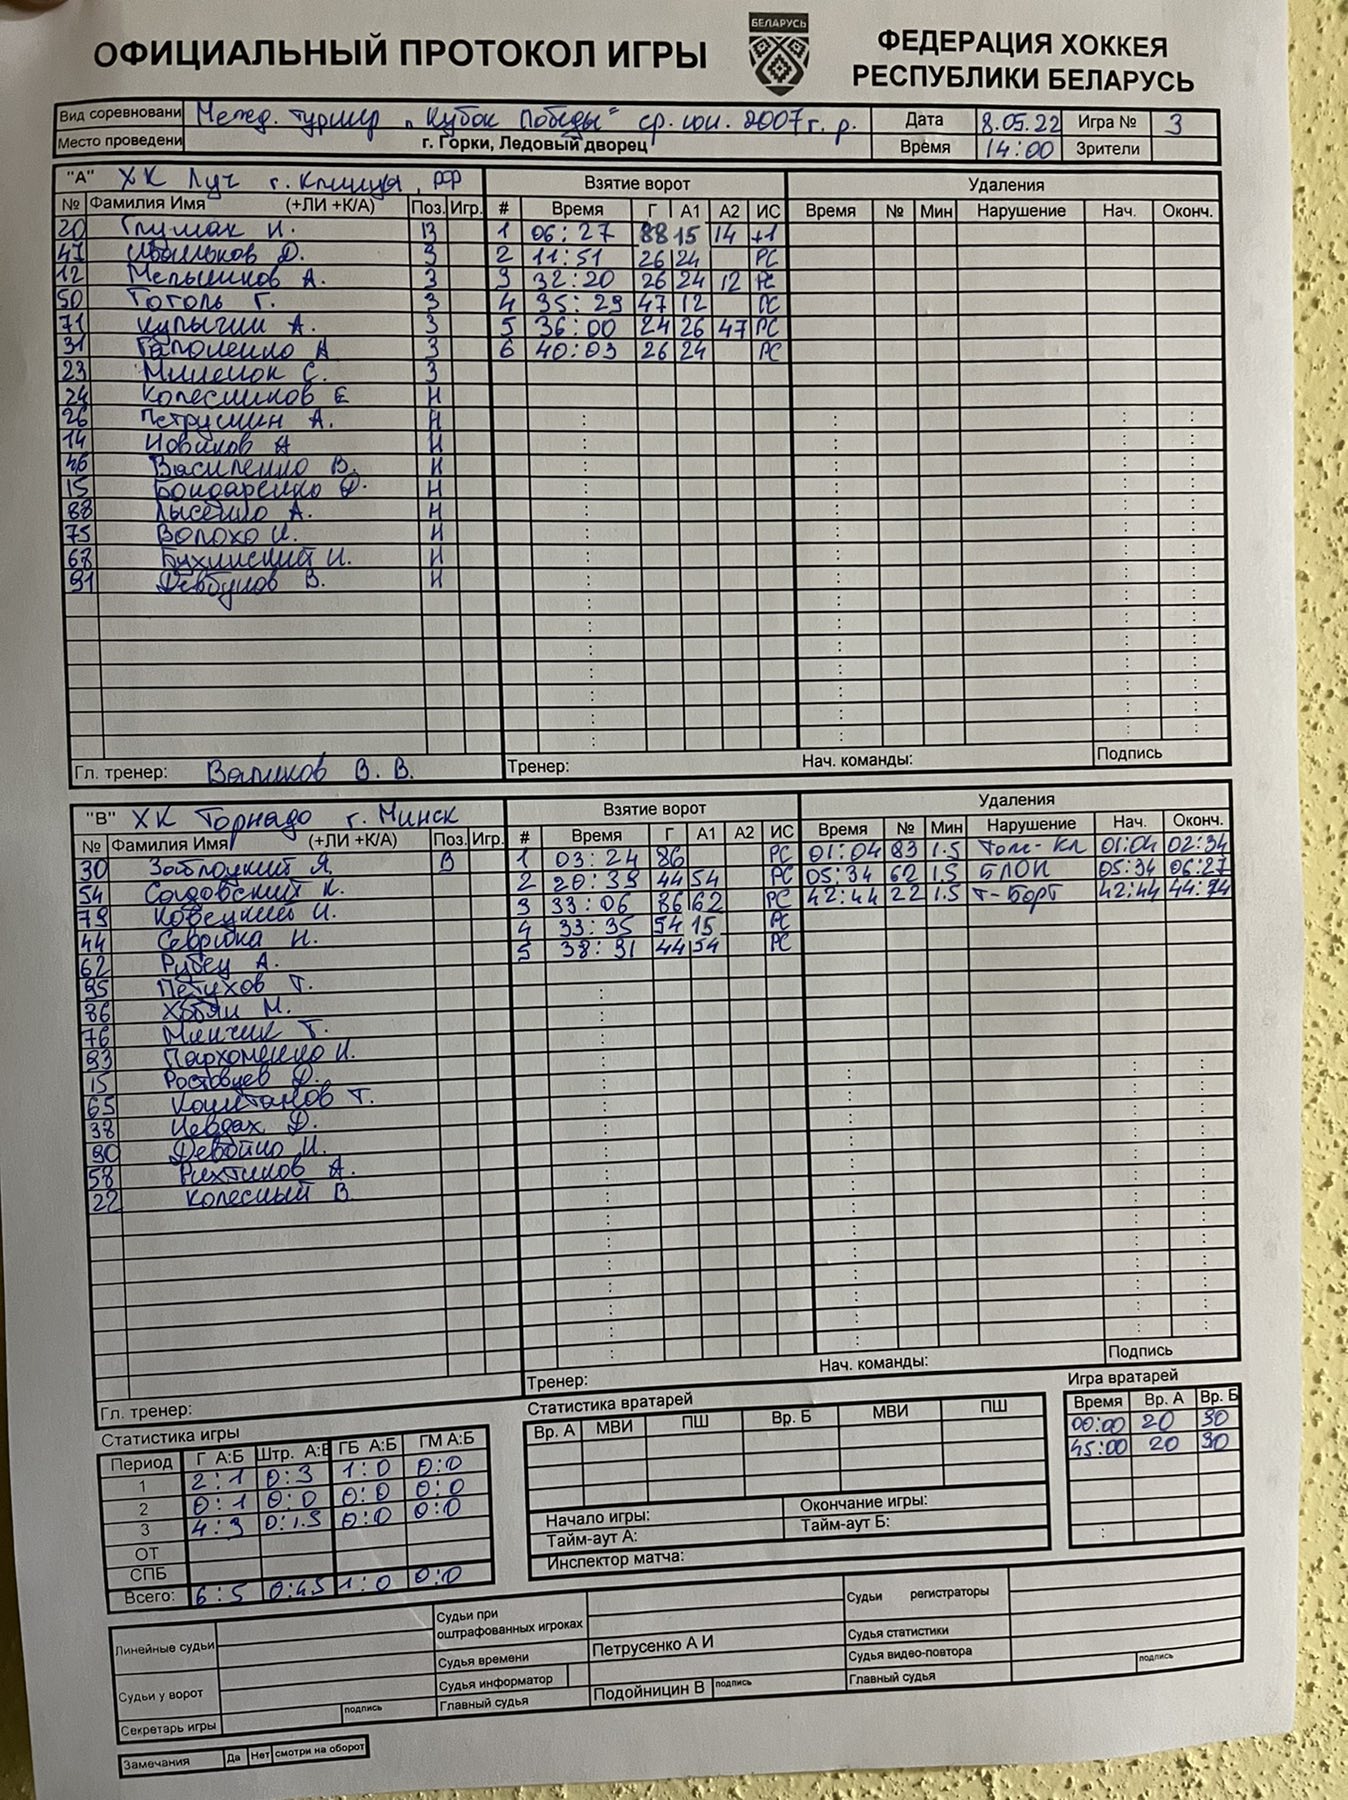 БЕЛАРУСЬ
ОФИЦИАЛЬНЫЙ ПРОТОКОЛ ИГРЫ
ФЕДЕРАЦИЯ ХОККЕЯ
РЕСПУБЛИКИ БЕЛАРУСЬ
Вид соревновани Межд. турнир "Кубок Победы" ср. юн. 2007 г. р. Дата 8.05.22 Игра № 3
Место проведени г. Горки, Ледовый дворец Время 14:00 Зрители
"А" ХК Луч г. Клинцы, РФ Взятие ворот Удаления
№ Фамилия Имя (+ЛИ +К/А) Поз. Игр. # Время Г А1 А2 ИС Время № Мин Нарушение Нач. Оконч.
20 Глумак И. В 1 06:27 88 15 14 +1
47 Д. З 2 11:51 26 24 РС
12 Мельников А. З 3 32:20 26 24 12 РС
50 Гоголь Г. З 4 35:29 47 12 РС
71 Кулыгин А. З 5 36:00 24 26 47 РС
31 Гапоненко А З 6 40:03 26 24 РС
23 Миленок С. З
24 Колесников Е Н
26 Петрушин А. Н
14 Новиков А Н
46 Василенко В. Н
15 Бондаренко Д. Н
88 Лысенко А. Н
75 Волохо И. Н
68 Бухинский И. Н
91 Девбунов В. Н
Гл. тренер: Валиков В. В. Тренер: Нач. команды: Подпись
"В" ХК Торнадо г. Минск Взятие ворот Удаления
№ Фамилия Имя (+ЛИ +К/А) Поз. Игр. # Время Г А1 А2 ИС Время № Мин Нарушение Нач. Оконч.
30 Заблоцкий Я. В 1 03:24 86 РС 01:04 83 1.5 Толч-Кл 01:04 02:34
54 Садовский К. 2 20:39 44 54 РС 05:34 62 1.5 БЛОК 05:34 06:27
79 Ковецкий И. 3 33:06 86 62 РС 42:44 22 1.5 Т-Борт 42:44 44:14
44 Севрюка Н. 4 33:35 54 15 РС
62 Рубец А. 5 38:31 44 54 РС
95 Петухов Т.
86 Хотян М.
76 Минчик Т.
93 Пархоменко И.
15 Ростовцев Д.
65 Коштанов Т.
38 Невдах Д.
90 Девойно И.
58 Рихтиков А.
22 Колесный В
Гл. тренер: Тренер: Нач. команды: Подпись
Статистика игры Статистика вратарей Игра вратарей
Период Г А:Б Штр. А:Б ГБ А:Б ГМ А:Б Вр. А МВИ ПШ Вр. Б МВИ ПШ Время Вр. А Вр. Б
1 2:1 0:3 1:0 0:0 00:00 20 30
2 0:1 0:0 0:0 0:0 45:00 20 30
3 4:3 0:1.5 0:0 0:0
ОТ
СПБ
Всего: 6:5 0:4.5 1:0 0:0
Начало игры: Окончание игры:
Тайм-аут А: Тайм-аут Б:
Инспектор матча:
Линейные судьи Судьи при оштрафованных игроках Судьи регистраторы
Судья времени Петрусенко А И Судья статистики
Судьи у ворот Судья информатор Судья видео-повтора подпись
Секретарь игры подпись Главный судья Подойницин В подпись Главный судья
Замечания Да Нет смотри на оборот